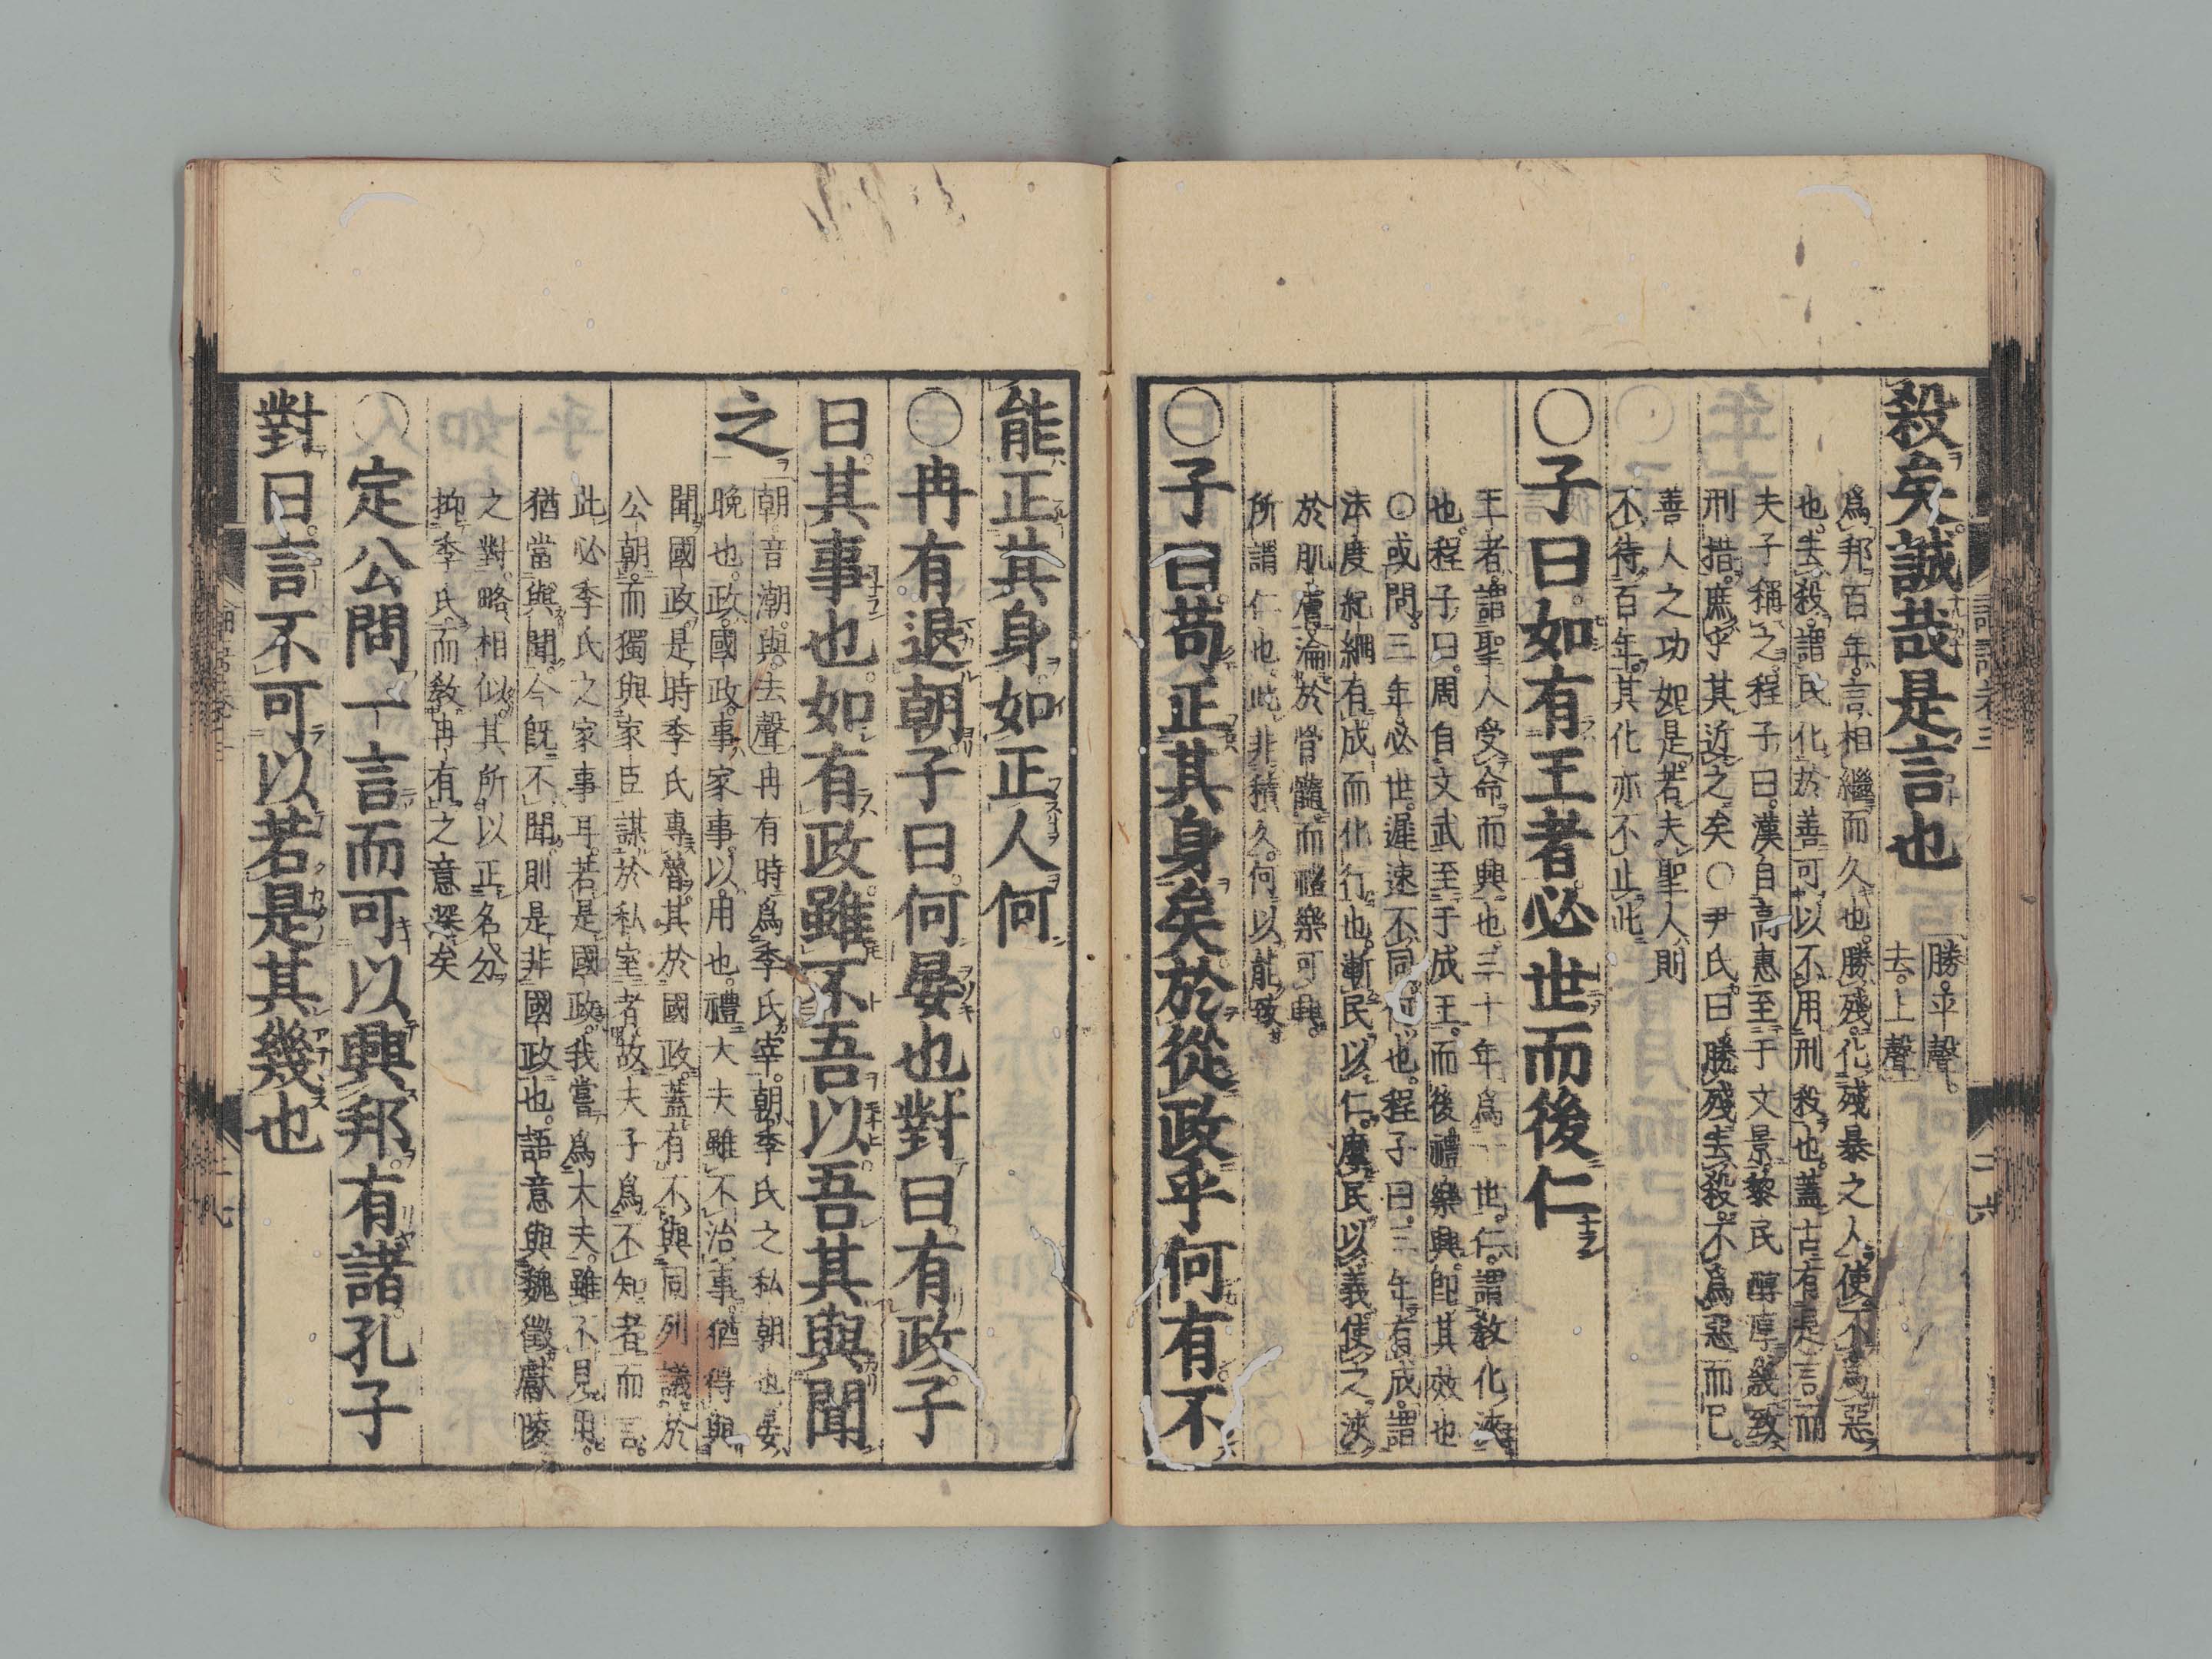 殺矣誠哉是言也
勝平聲。
去上聲
爲邦百年。言相繼而久也。勝殘。化殘暴之人使不爲惡
也。去殺。謂民化於善可以不用刑殺也。蓋古有是言而
夫子稱之。程子曰。漢自高惠至于文景黎民醇厚幾致
刑措。庶乎其近之矣〇尹氏曰勝殘去殺。不爲惡而已。
善人之功如是。若夫聖人則
不待百年。其化亦不止此
〇子曰。如有王者。必世而後仁
王者。謂聖人受命而興也。三十年爲一世。仁。謂敎化浹
也。程子曰。周自文武至于成王。而後禮樂興。卽其效也
〇或問。三年必世。遲速不同何也。程子曰。三年有成。謂
法度紀綱有成而化行也。漸民以仁。摩民以義。使之浹
於肌膚。淪於骨髓。而禮樂可興。
所謂仁也。此非積久。何以能致。
〇子曰。苟正其身矣。於從政乎何有。不
能正其身。如正人何
〇冉有退朝。子曰。何晏也。對曰。有政。子
曰。其事也。如有政。雖不吾以。吾其與聞
之
朝。音潮。與。去聲 冉有時爲季氏宰。朝。季氏之私朝也。晏。
晚也。政。國政。事。家事。以。用也。禮大夫雖不治事。猶得與
聞國政。是時季氏專魯。其於國政。蓋有不與同列議於
公朝。而獨與家臣謀於私室者。故夫子爲不知者而言。
此必季氏之家事耳。若是國政。我嘗爲大夫。雖不見用。
猶當與聞。今旣不聞。則是非國政也。語意與魏徵獻陵
之對。略相似。其所以正名分。
抑季氏。而敎冉有之意深矣
〇定公問。一言而可以興邦。有諸。孔子
對曰。言不可以若是其幾也